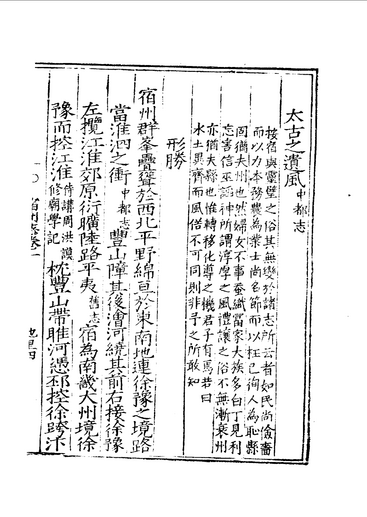 太古之遺風中都志
按宿與靈璧之俗其無變於諸志所云者如民尚儉嗇
而以力本務農為業士尚名節而以枉己徇人為恥縣
固猶夫州也然婦女不事蠶織富家大族多白丁見利
忘害信巫謟神所謂淳厚之風禮讓之俗不無漸衰州
亦猶夫縣也惟轉移化導之機君子有焉若曰
水土異齊而風俗不可同則非予之所敢知
形勝
宿州群峯疊聳於西北平野綿亘於東南地連徐豫之境路
當淮泗之衝中都志豐山障其後澮河繞其前右接徐豫
左攬江淮郊原衍曠陸路平夷舊志宿為南畿大州境徐
豫而控江淮侍講周洪謨修廟學記枕豐山帶睢河憑邳控徐跨汴
宿州志卷一